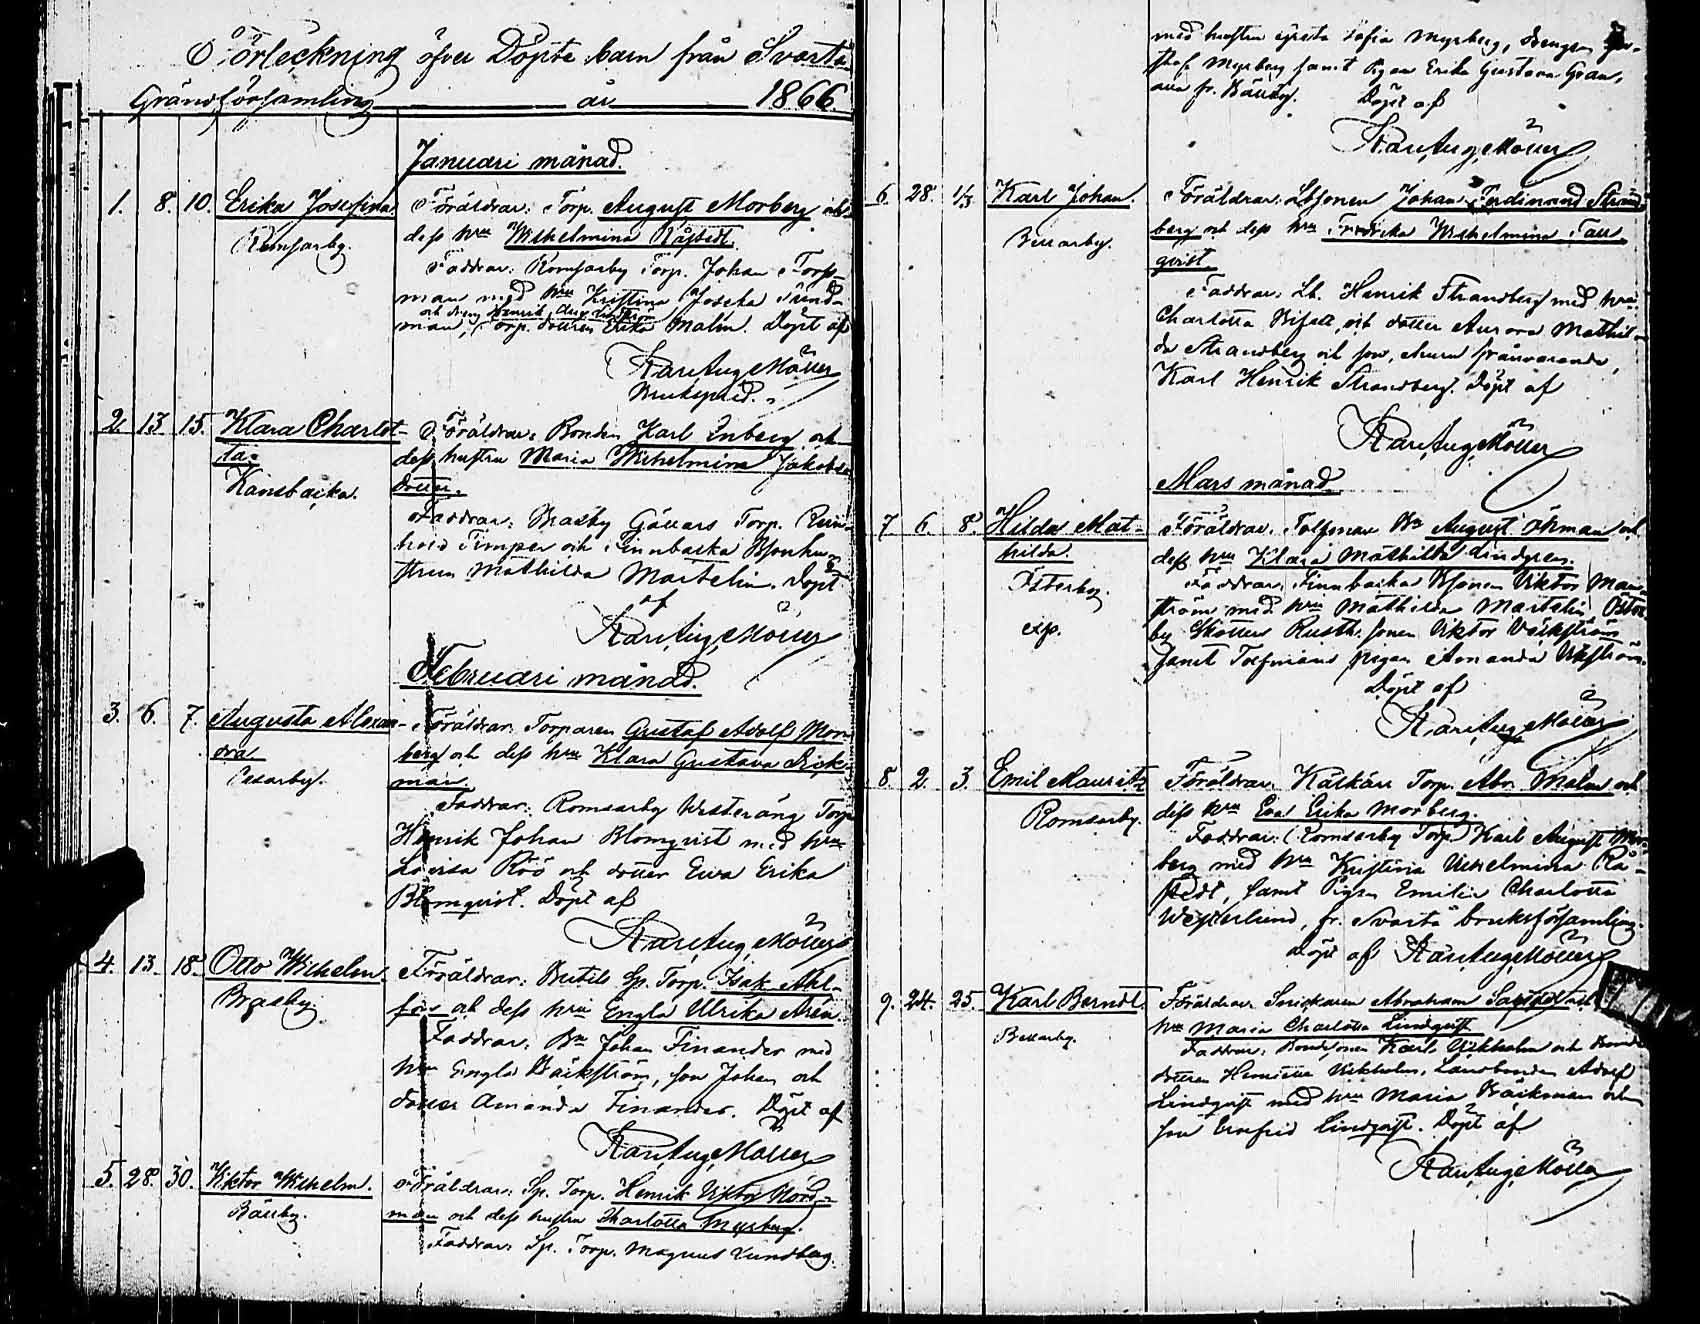 Förteckning öfver Döpta barn från Svartå
Grannförsamling år 1866.
Januari månad.
1. 8. 10. Erika Josefina. Föräldrar: Torp. August Morberg och
Romsarby. dess hru Wilhelmina Råstedt.
Faddrar: Romsarby Torp. Johan Fors-
man med hru Kristina Josefa Sund-
och dreng Henrik Aug. Lindström
man, Torp. dottren Erika Malm. Döpt af
Karl Aug. Möller
Brukspred.
2. 13. 15. Klara Charlot- Föräldrar: Bonden Karl Enberg och
ta. dess hustru Maria Wilhelmina Jakobs
Kansbacka. dotter.
Faddrar: Brasby Torp. Rein-
hold Timper och Finnbacka Bsonhu-
strun Mathilda Martelin. Döpt
af
Karl Aug. Möller
Februari månad.
3. 6. 7. Augusta Alexan- Föräldrar: Torparen Gustaf Adolf Mor-
dra berg och dess hru Klara Gustava
man.
Faddrar: Romsarby Westeräng Torp
Henrik Johan Blomqvist med hru
Lovisa Röö och dotter Ewa Erika
Blomqvist. Döpt af
Karl Aug. Möller
4. 13. 18. Otto Wilhelm. Föräldrar: Sp. Torp. Isak Ahl-
Brasby. fors och dess hru Engla Ulrika Arén.
Faddrar: Bn Johan Finander med
hru Engla Bäckström, son Johan och
dotter Amanda Finander. Döpt af
Karl Aug. Möller
5. 28. 30. Viktor Wilhelm. Föräldrar: Sp. Torp. Henrik Viktor Nord-
Bällby. man och dess hustru Charlotta Myrberg.
Faddrar: Sp. Torp. Magnus Lundberg
med hustru Sofia Myrberg, drengen Gus-
taf Myrberg samt Pigan Erika Gustava Gran,
alla fr. Bällby. Döpt af
Karl Aug. Möller
6. 28. 1/3 Karl Johan. Föräldrar: Lbsonen Johan Ferdinand Strand-
berg och dess hru Fredrika Wilhelmina Fall-
qvist.
Faddrar: Lb. Henrik Strandberg med hru
Charlotta och dotter Aurora Mathil-
da Strandberg och son, frånvarande,
Karl Henrik Strandberg. Döpt af
Karl Aug. Möller
Mars månad.
7. 6. 8. Hilda Mat- Föräldrar: Tolfman Bn August Öhman och
hilda. dess hru Klara Mathilda Lindgren.
Österby. Faddrar: Finnbacka Bsonen Viktor Malm-
ström med hru Mathilda Martelin, Öster-
exp. by Rusth. sonen Viktor
samt Tolfmans pigan Amanda
Döpt af
Karl Aug. Möller
8. 2. 3. Emil Mauritz Föräldrar: Torp. Abr. Malm och
Romsarby. dess hru Eva Erika Morberg.
Faddrar: (Romsarby Torp) Karl August Mor-
berg med hru Kristina Wilhelmina Rå-
stedt, samt Pigan Emilia Charlotta
Westerlund, fr. Svartå bruksförsamling.
Döpt af Karl Aug. Möller
9. 24. 25. Karl Berndt. Föräldrar: Snickaren Abraham
hru Maria Charlotta Lindqvist
Faddrar: Bondsonen Karl Wikholm och Bonde
dottren Henrietta Wikholm, Landbonden Adolf
Lindqvist med hru Maria och
son Ernfrid Lindqvist. Döpt af
Karl Aug. Möller